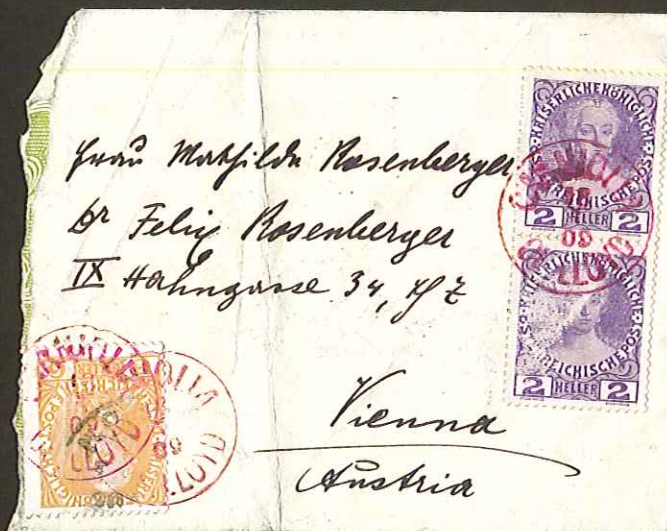 Frau Mathilde Rosenberger
br Felix Rosenberger
IX Hahngasse 34,
Vienna
Austria
KAISERLICHE KÖNIGLICHE
ÖSTERREICHISCHE POST
2 HELLER 2
09
LLOYD
KAISERLICHE KÖNIGLICHE
ÖSTERREICHISCHE POST
2 HELLER 2
LLOYD
09
LLOYD